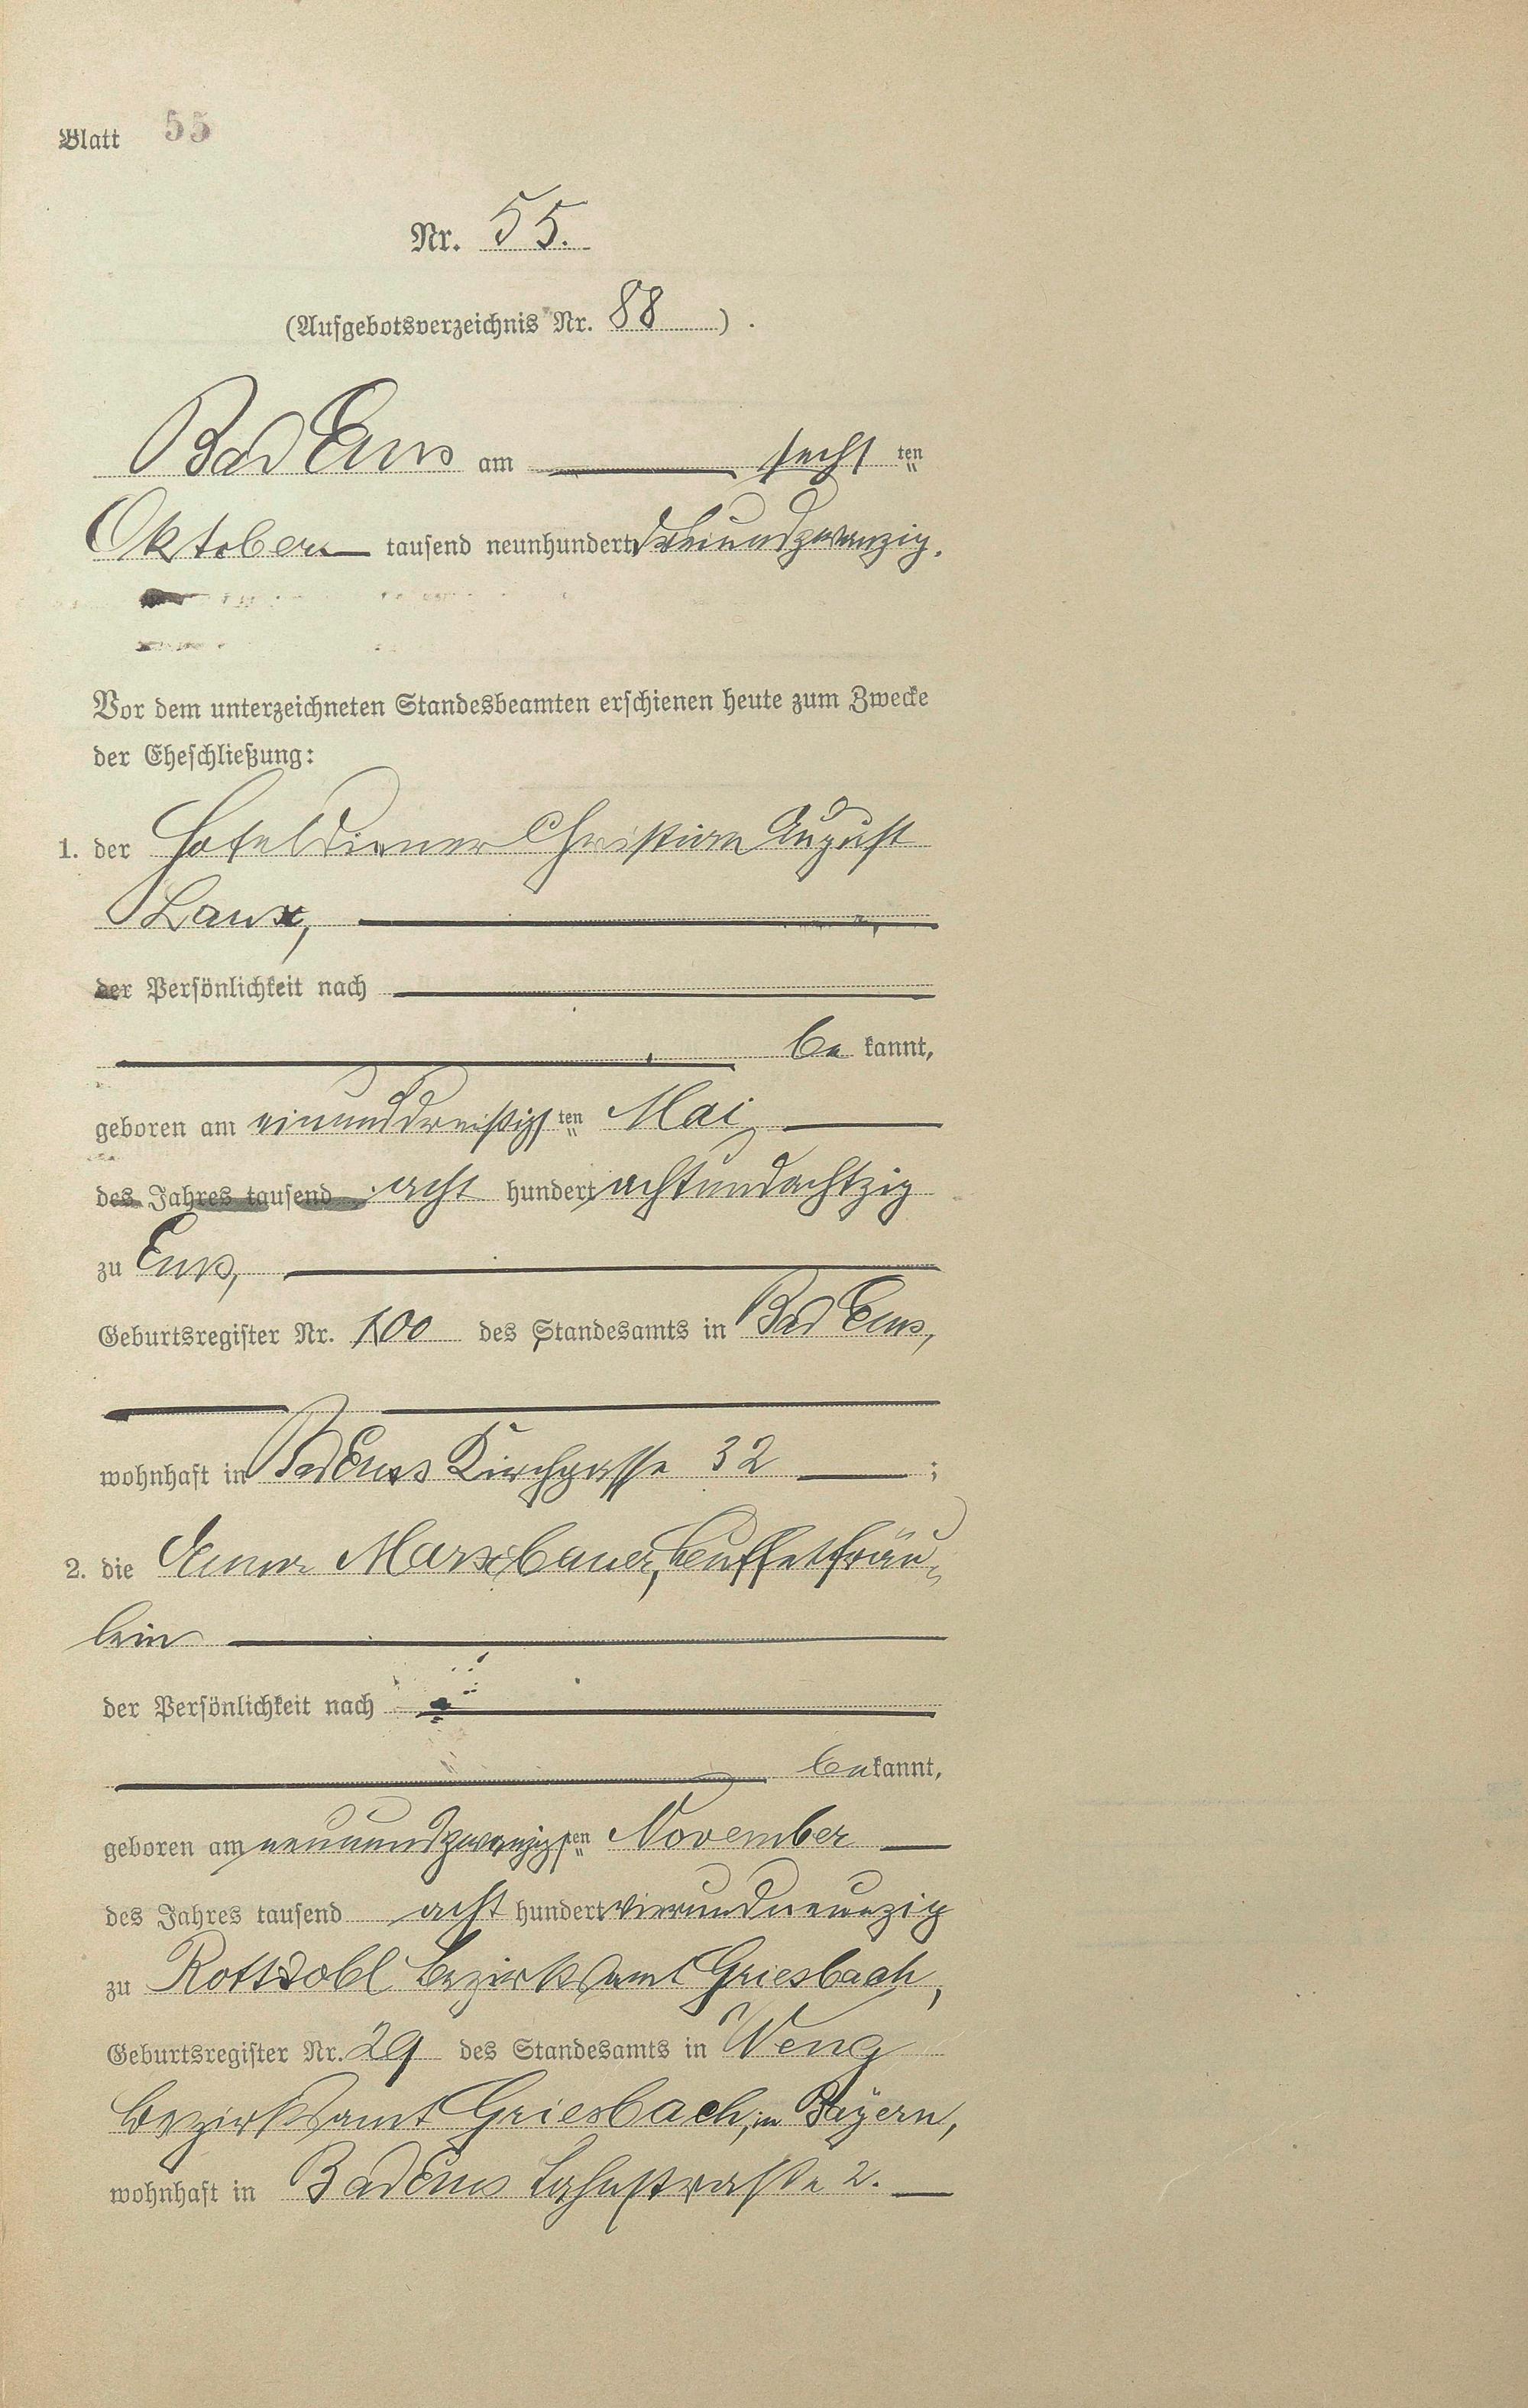 Blatt 55
Nr. 55.
(Aufgebotsverzeichnis Nr. 88 ) .
Bad Ems am sechs ten
Oktober tausend neunhundert dreiundzwanzig.
Vor dem unterzeichneten Standesbeamten erschienen heute zum Zwecke
der Eheschließung:
1. der Hoteldiener Christian August
Laux,
der Persönlichkeit nach
be kannt,
geboren am einunddreißigs ten Mai
des Jahres tausend acht hundert achtundachtzig
zu Ems,
Geburtsregister Nr. 100 des Standesamts in Bad Ems,
wohnhaft in Bad Ems Kirchgasse 32 ;
2. die Anna Marxbauer, Buffetfräu-
lein
der Persönlichkeit nach
be kannt,
geboren am neunundzwanzigs ten November
des Jahres tausend acht hundert vierundneunzig
zu Rottdobl Bezirksamt Griesbach,
Geburtsregister Nr. 29 des Standesamts in Weng
Bezirksamt Griesbach, in Bayern,
wohnhaft in Bad Ems Lahnstraße 2.